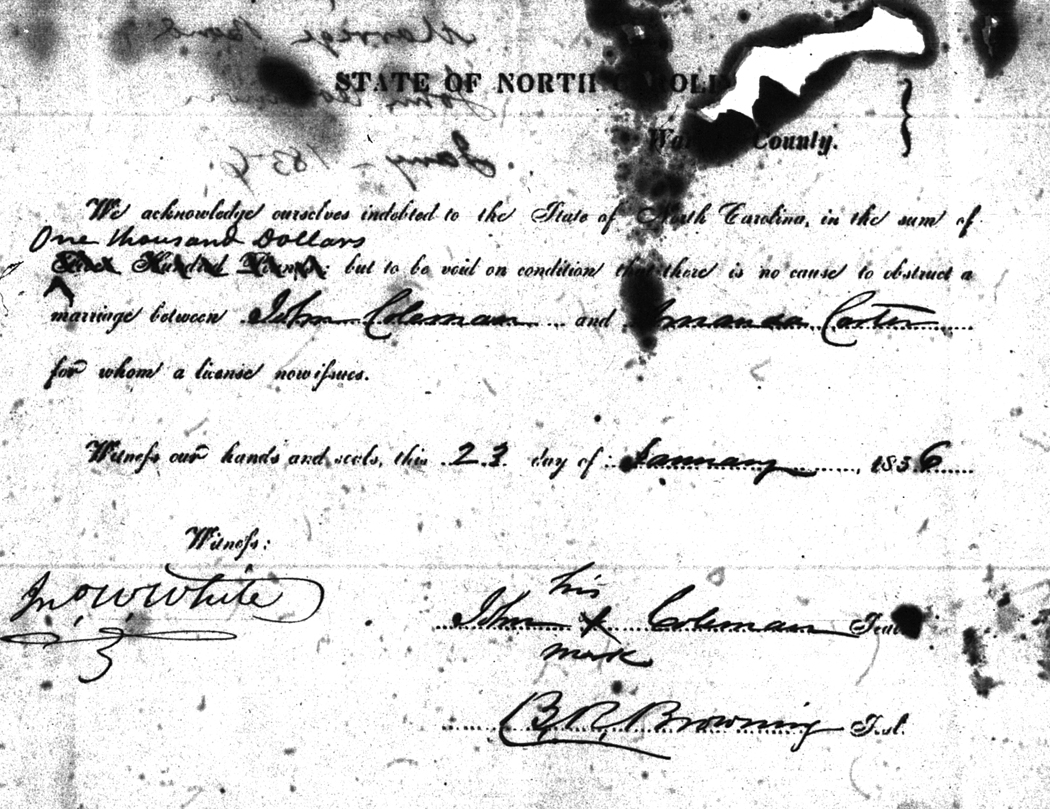 STATE OF NORTH CAROLIN
War County.
We acknowledge ourselves indebted to the State of North Carolina, in the sum of
One thousand Dollars
Five Hundred Pounds: but to be void on condition that there is no cause to obstruct a
marriage between John Coleman and Amanda Carter
for whom a license now issues.
Witness our hands and seals, this 23 day of January, 1836
Witness:
Jno W White
his
John X Coleman Seal
mark
B. R. Browning Seal.